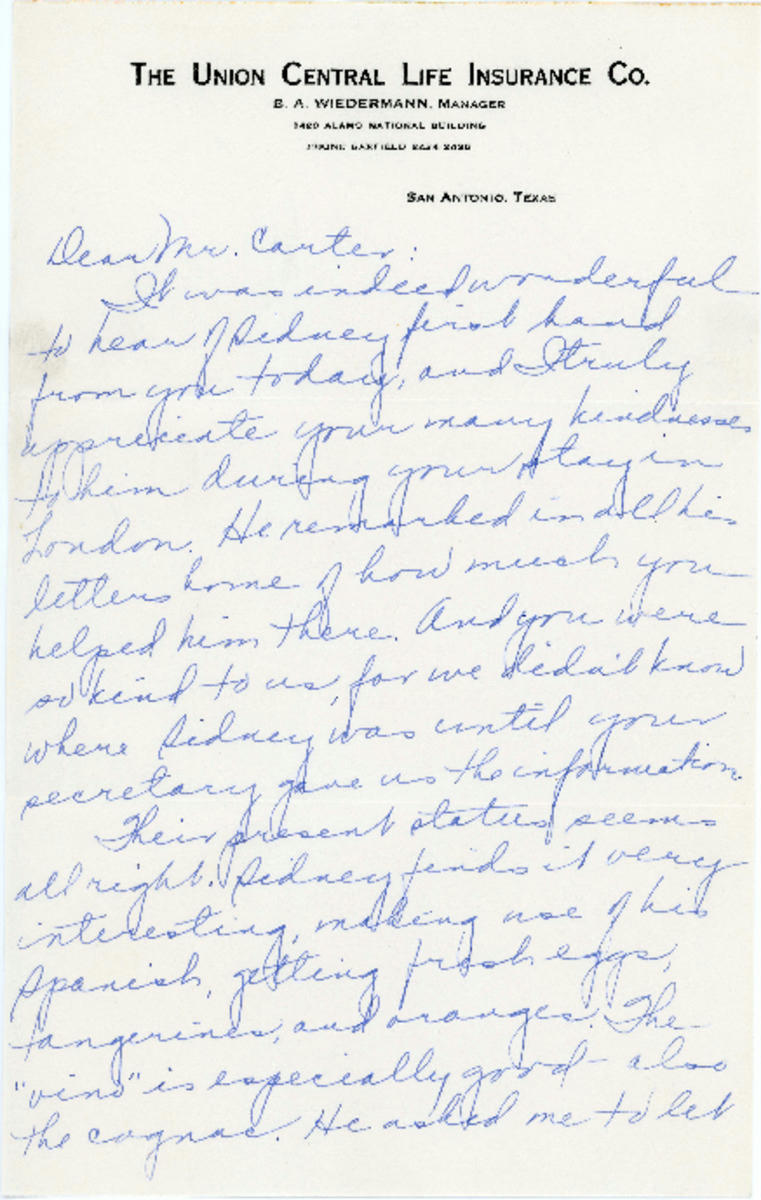 THE UNION CENTRAL LIFE INSURANCE CO.
B. A. WIEDERMANN, MANAGER
ALAMO NATIONAL BUILDING
PHONE GARFIELD
SAN ANTONIO, TEXAS
Dear Mr. Carter:
It was indeed wonderful
to hear of Sidney first hand
from you today, and I truly
appreciate your many kindnesses
to him during your stay in
London. He remarked in all his
letters home of how much you
helped him there. And you were
so kind to us, for we didn't know
where Sidney was until your
secretary gave us the information.
Their present status seems
all right. Sidney finds it very
interesting, making use of his
Spanish, getting fresh eggs,
tangerines, and oranges. The
"vino" is especially good - also
the cognac. He asked me to let